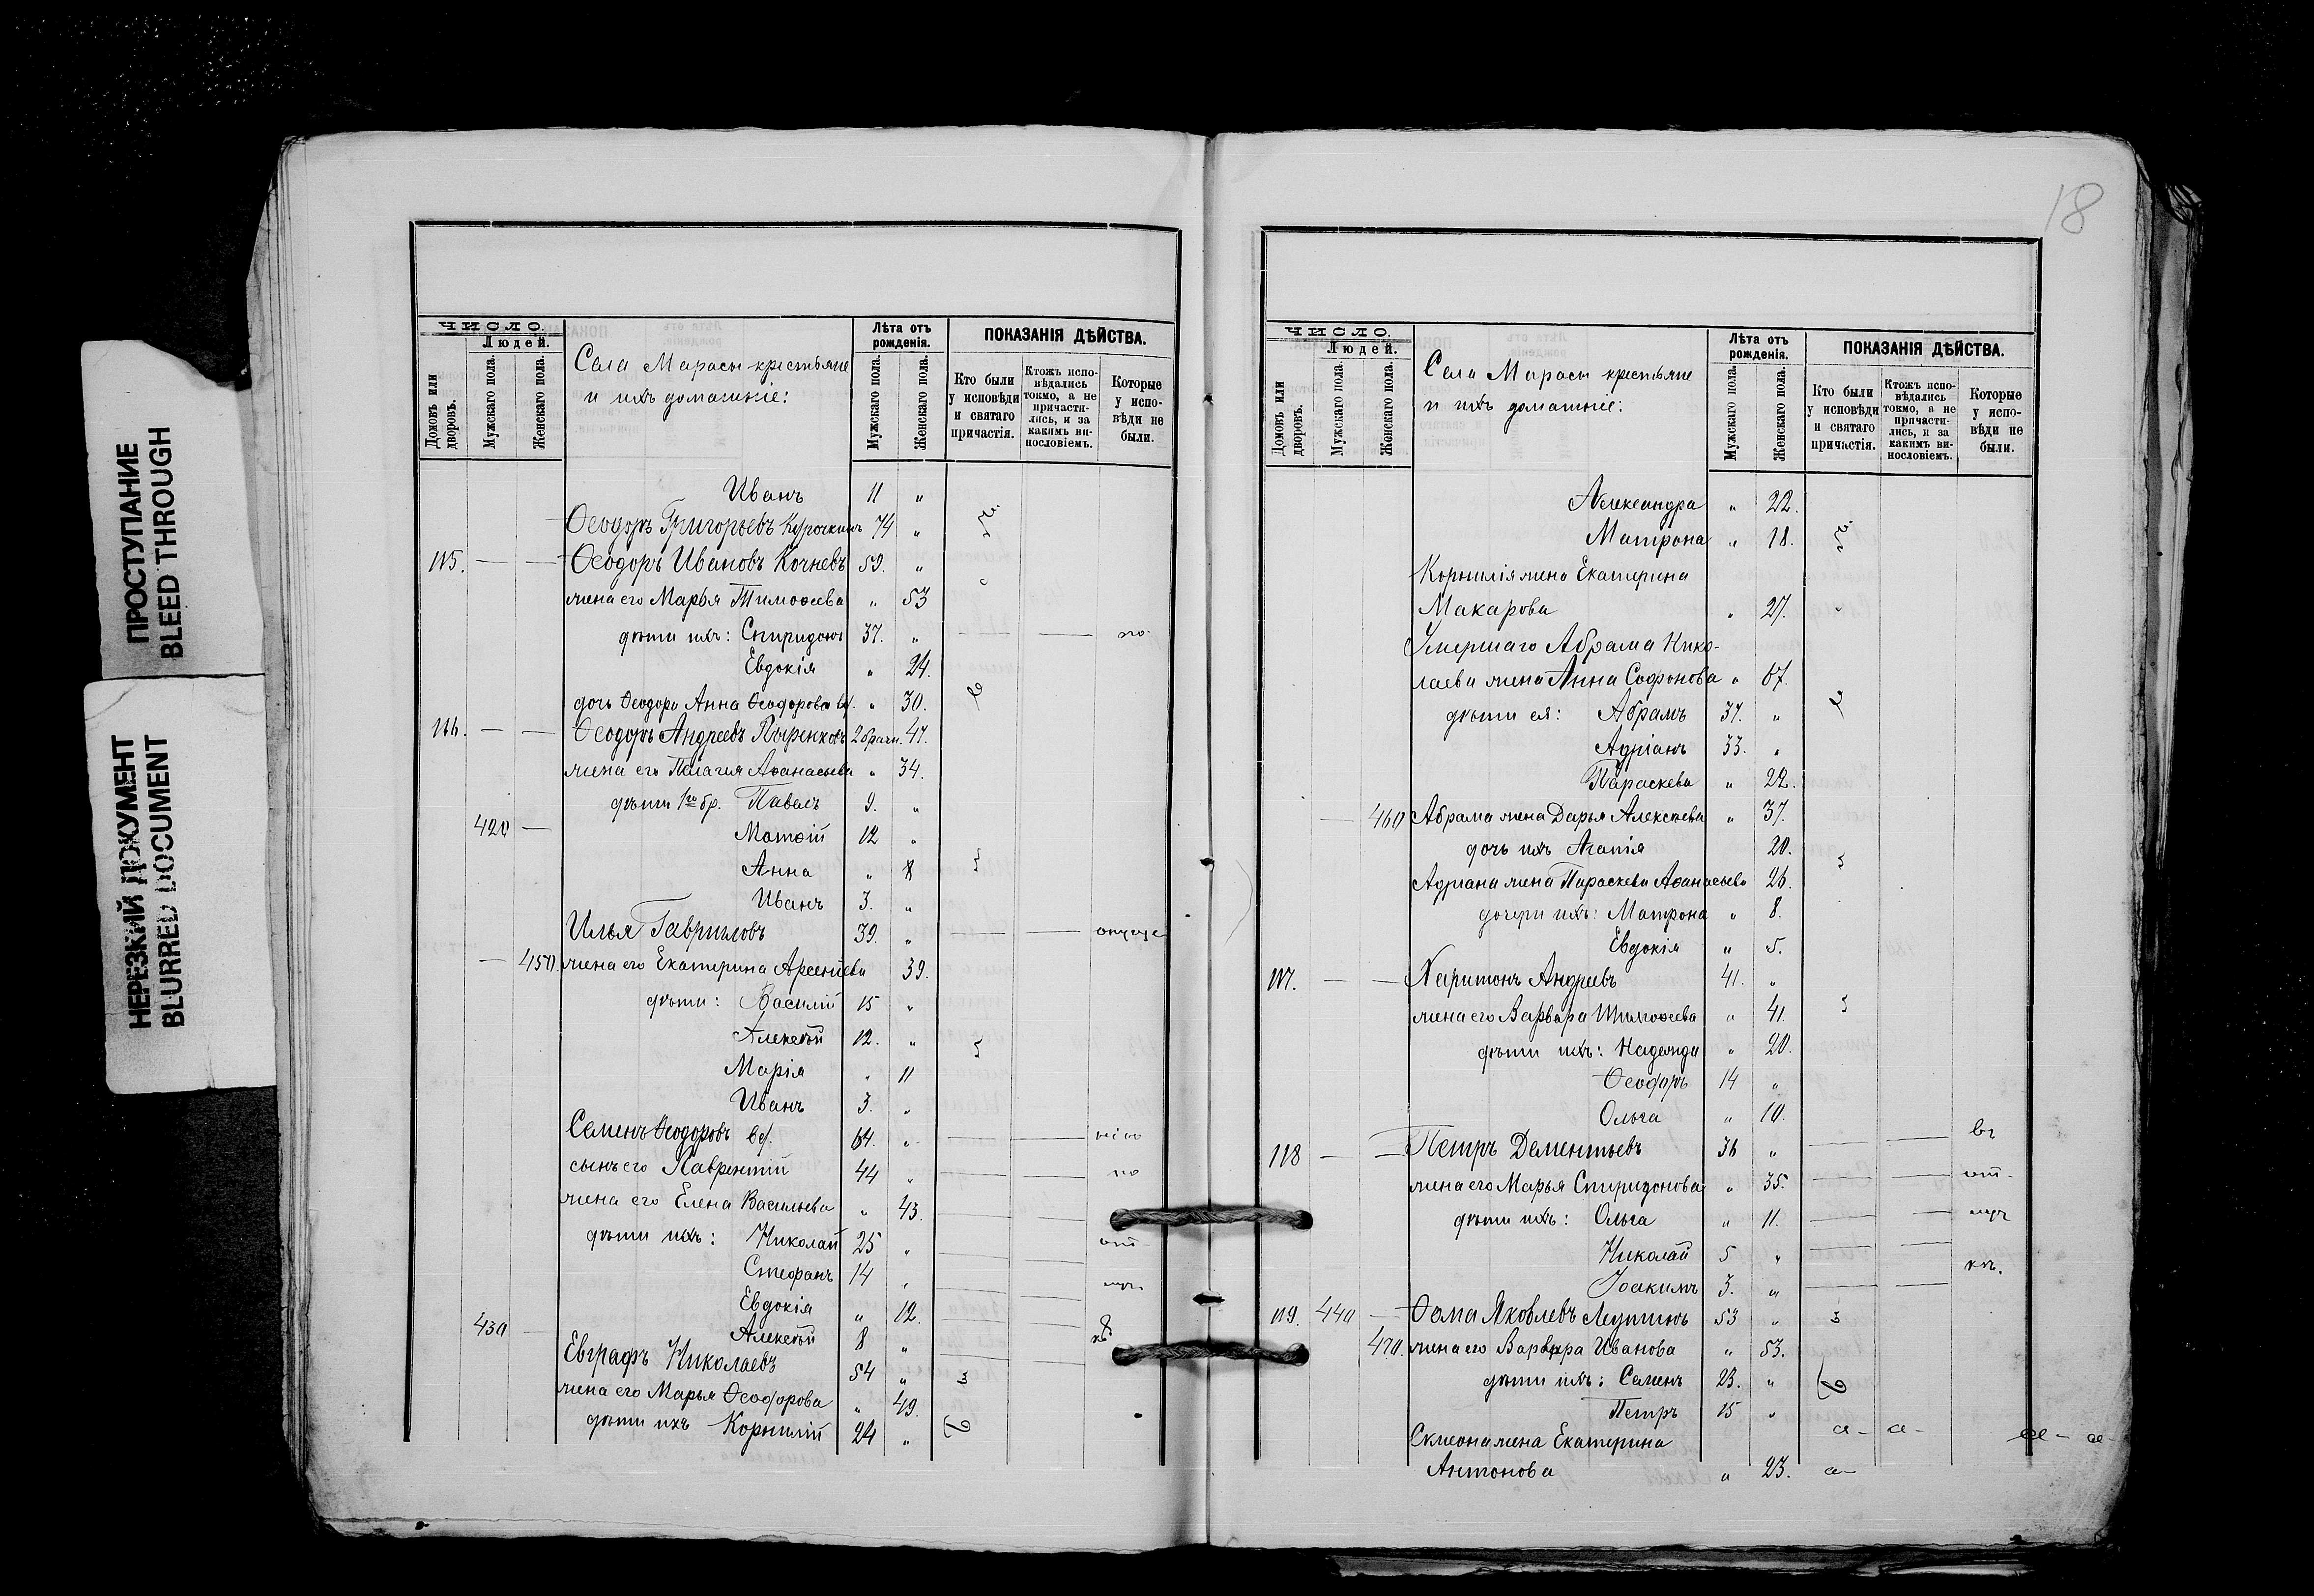 ПРОСТУПАНИЕ
BLEED THROUGH
НЕРЕЗКИЙ ДОКУМЕНТ
BLURRED DOCUMENT
ЧИСЛО.
Людей.
Домовъ или дворовъ.
Мужскаго пола.
Женскаго пола.
Села Марасы крестьяне
и ихъ домашніе:
Лѣта отъ рожденія.
Мужскаго пола.
Женскаго пола.
ПОКАЗАНІЯ ДѢЙСТВА.
Кто были у исповѣди и святаго причастія.
Ктожъ исповѣдались токмо, а не причастились, и за какимъ винословіемъ.
Которые у исповѣди не были.
Иванъ 11 "
Ѳеодоръ Григорьевъ Курочкинъ 74 "
115. — — Ѳеодоръ Ивановъ Кочневъ 59. "
жена его Марья Тимоѳеева " 53
дѣти ихъ: Спиридонъ 37. " — — по
Евдокія " 24.
дочь Ѳеодора Анна Ѳеодорова вд. " 30.
116. — — Ѳеодоръ Андреевъ 2 брач. 47.
жена его Пелагея Аѳанасьева " 34.
дѣти 1го бр. Павелъ 9. "
420 — Матѳій 12 "
Анна " 8
Иванъ 3. "
Илья Гавриловъ 39. " — —
— 450. жена его Екатерина Арсентьева 39.
дѣти: Василій 15 "
Алексѣй 12. "
Марія " 11
Иванъ 3. "
Семенъ Ѳеодоровъ вд. 64. " — —
сынъ его Лаврентій 44 " — — по
жена его Елена Васильева " 43. — —
дѣти ихъ: Николай 25 " — — от-
Стефанъ 14 " — — луч.
Евдокія " 12. — —
430 — Алексѣй 8 " — — кѣ
Евграфъ Николаевъ 54 "
жена его Марья Ѳеодорова " 49.
дѣти ихъ Корнилій 24 "
18
ЧИСЛО.
Людей.
Домовъ или дворовъ.
Мужскаго пола.
Женскаго пола.
Села Марасы крестьяне
и ихъ домашніе:
Лѣта отъ рожденія.
Мужскаго пола.
Женскаго пола.
ПОКАЗАНІЯ ДѢЙСТВА.
Кто были у исповѣди и святаго причастія.
Ктожъ исповѣдались токмо, а не причастились, и за какимъ винословіемъ.
Которые у исповѣди не были.
Александра " 22.
Матрона " 18.
Корнилія жена Екатерина
Макарова " 27.
Умершаго Абрама Нико-
лаева жена Анна Софонова " 67.
дѣти ея: Абрамъ 37. "
Адріанъ 33. "
Параскева " 22.
— 460 Абрама жена Дарья Алексѣева " 37.
дочь ихъ Агапія 20.
Адріана жена Параскева Аѳанасьева 26.
дочери ихъ: Матрона " 8.
Евдокія " 5.
117. — — Харитонъ Андреевъ 41. "
жена его Варвара Тимоѳеева " 41
дѣти ихъ: Надежда " 20.
Ѳеодоръ 14 "
Ольга " 10.
118 — — Петръ Дементьевъ 36 " — — въ
жена его Марья Спиридонова " 35. — — от-
дѣти ихъ: Ольга " 11. — — луч
Николай 5 " — — кѣ.
Іоакимъ 3. " — —
119. 440 — Ѳома Яковлевъ 53 "
470. жена его Варвара Иванова " 53.
дѣти ихъ: Семенъ 23. "
Петръ 15 "
Симеона жена Екатерина
Антонова " 23.